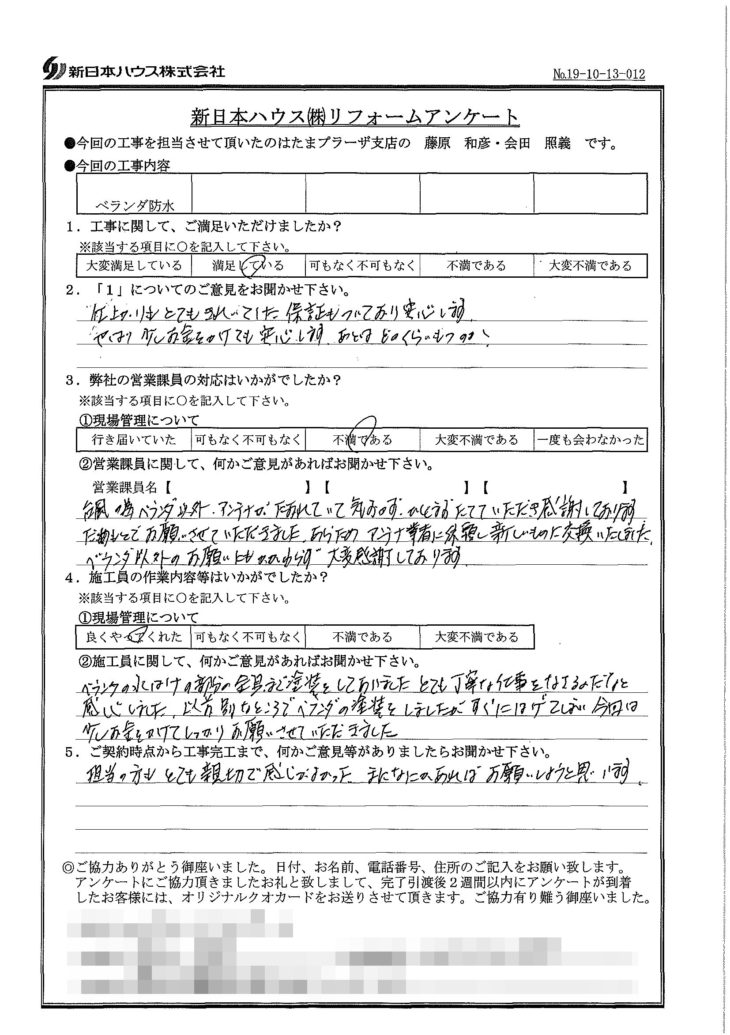 新日本ハウス株式会社
No.19-10-13-012
新日本ハウス㈱リフォームアンケート
●今回の工事を担当させて頂いたのはたまプラーザ支店の 藤原 和彦・会田 照義 です。
●今回の工事内容
ベランダ防水
1．工事に関して、ご満足いただけましたか？
※該当する項目に○を記入して下さい。
大変満足している 満足している 可もなく不可もなく 不満である 大変不満である
2．「1」についてのご意見をお聞かせ下さい。
仕上がりもとてもきれいでした 保証もついており安心します
やはり少しお金をかけても安心します あとはどのくらいもつのか！
3．弊社の営業課員の対応はいかがでしたか？
※該当する項目に○を記入して下さい。
①現場管理について
行き届いていた 可もなく不可もなく 不満である 大変不満である 一度も会わなかった
②営業課員に関して、何かご意見があればお聞かせ下さい。
営業課員名【 】【 】【 】
台風の為ベランダ以外 アンテナがたおれていて 気づかず たてていただき感謝しております
だめもとでお願いさせていただきました あらためアンテナ業者に依頼し新しいものに交換いたしました
ベランダ以外のお願いにもかかわらず 大変感謝しております
4．施工員の作業内容等はいかがでしたか？
※該当する項目に○を記入して下さい。
①現場管理について
良くやってくれた 可もなく不可もなく 不満である 大変不満である
②施工員に関して、何かご意見があればお聞かせ下さい。
ベランダの水はけの部分の金具まで塗装をしてありました とても丁寧な仕事をなさるみたいだなと
感心しました 以前別なところでベランダの塗装をしましたがすぐにはげてしまい 今回は
少しお金をかけてしっかりお願いさせていただきました
5．ご契約時点から工事完工まで、何かご意見等がありましたらお聞かせ下さい。
担当の方もとても親切で感じがよかった またなにかあればお願いしようと思います
◎ご協力ありがとう御座いました。日付、お名前、電話番号、住所のご記入をお願い致します。
アンケートにご協力頂きましたお礼と致しまして、完了引渡後2週間以内にアンケートが到着
したお客様には、オリジナルクオカードをお送りさせて頂きます。ご協力有り難う御座いました。